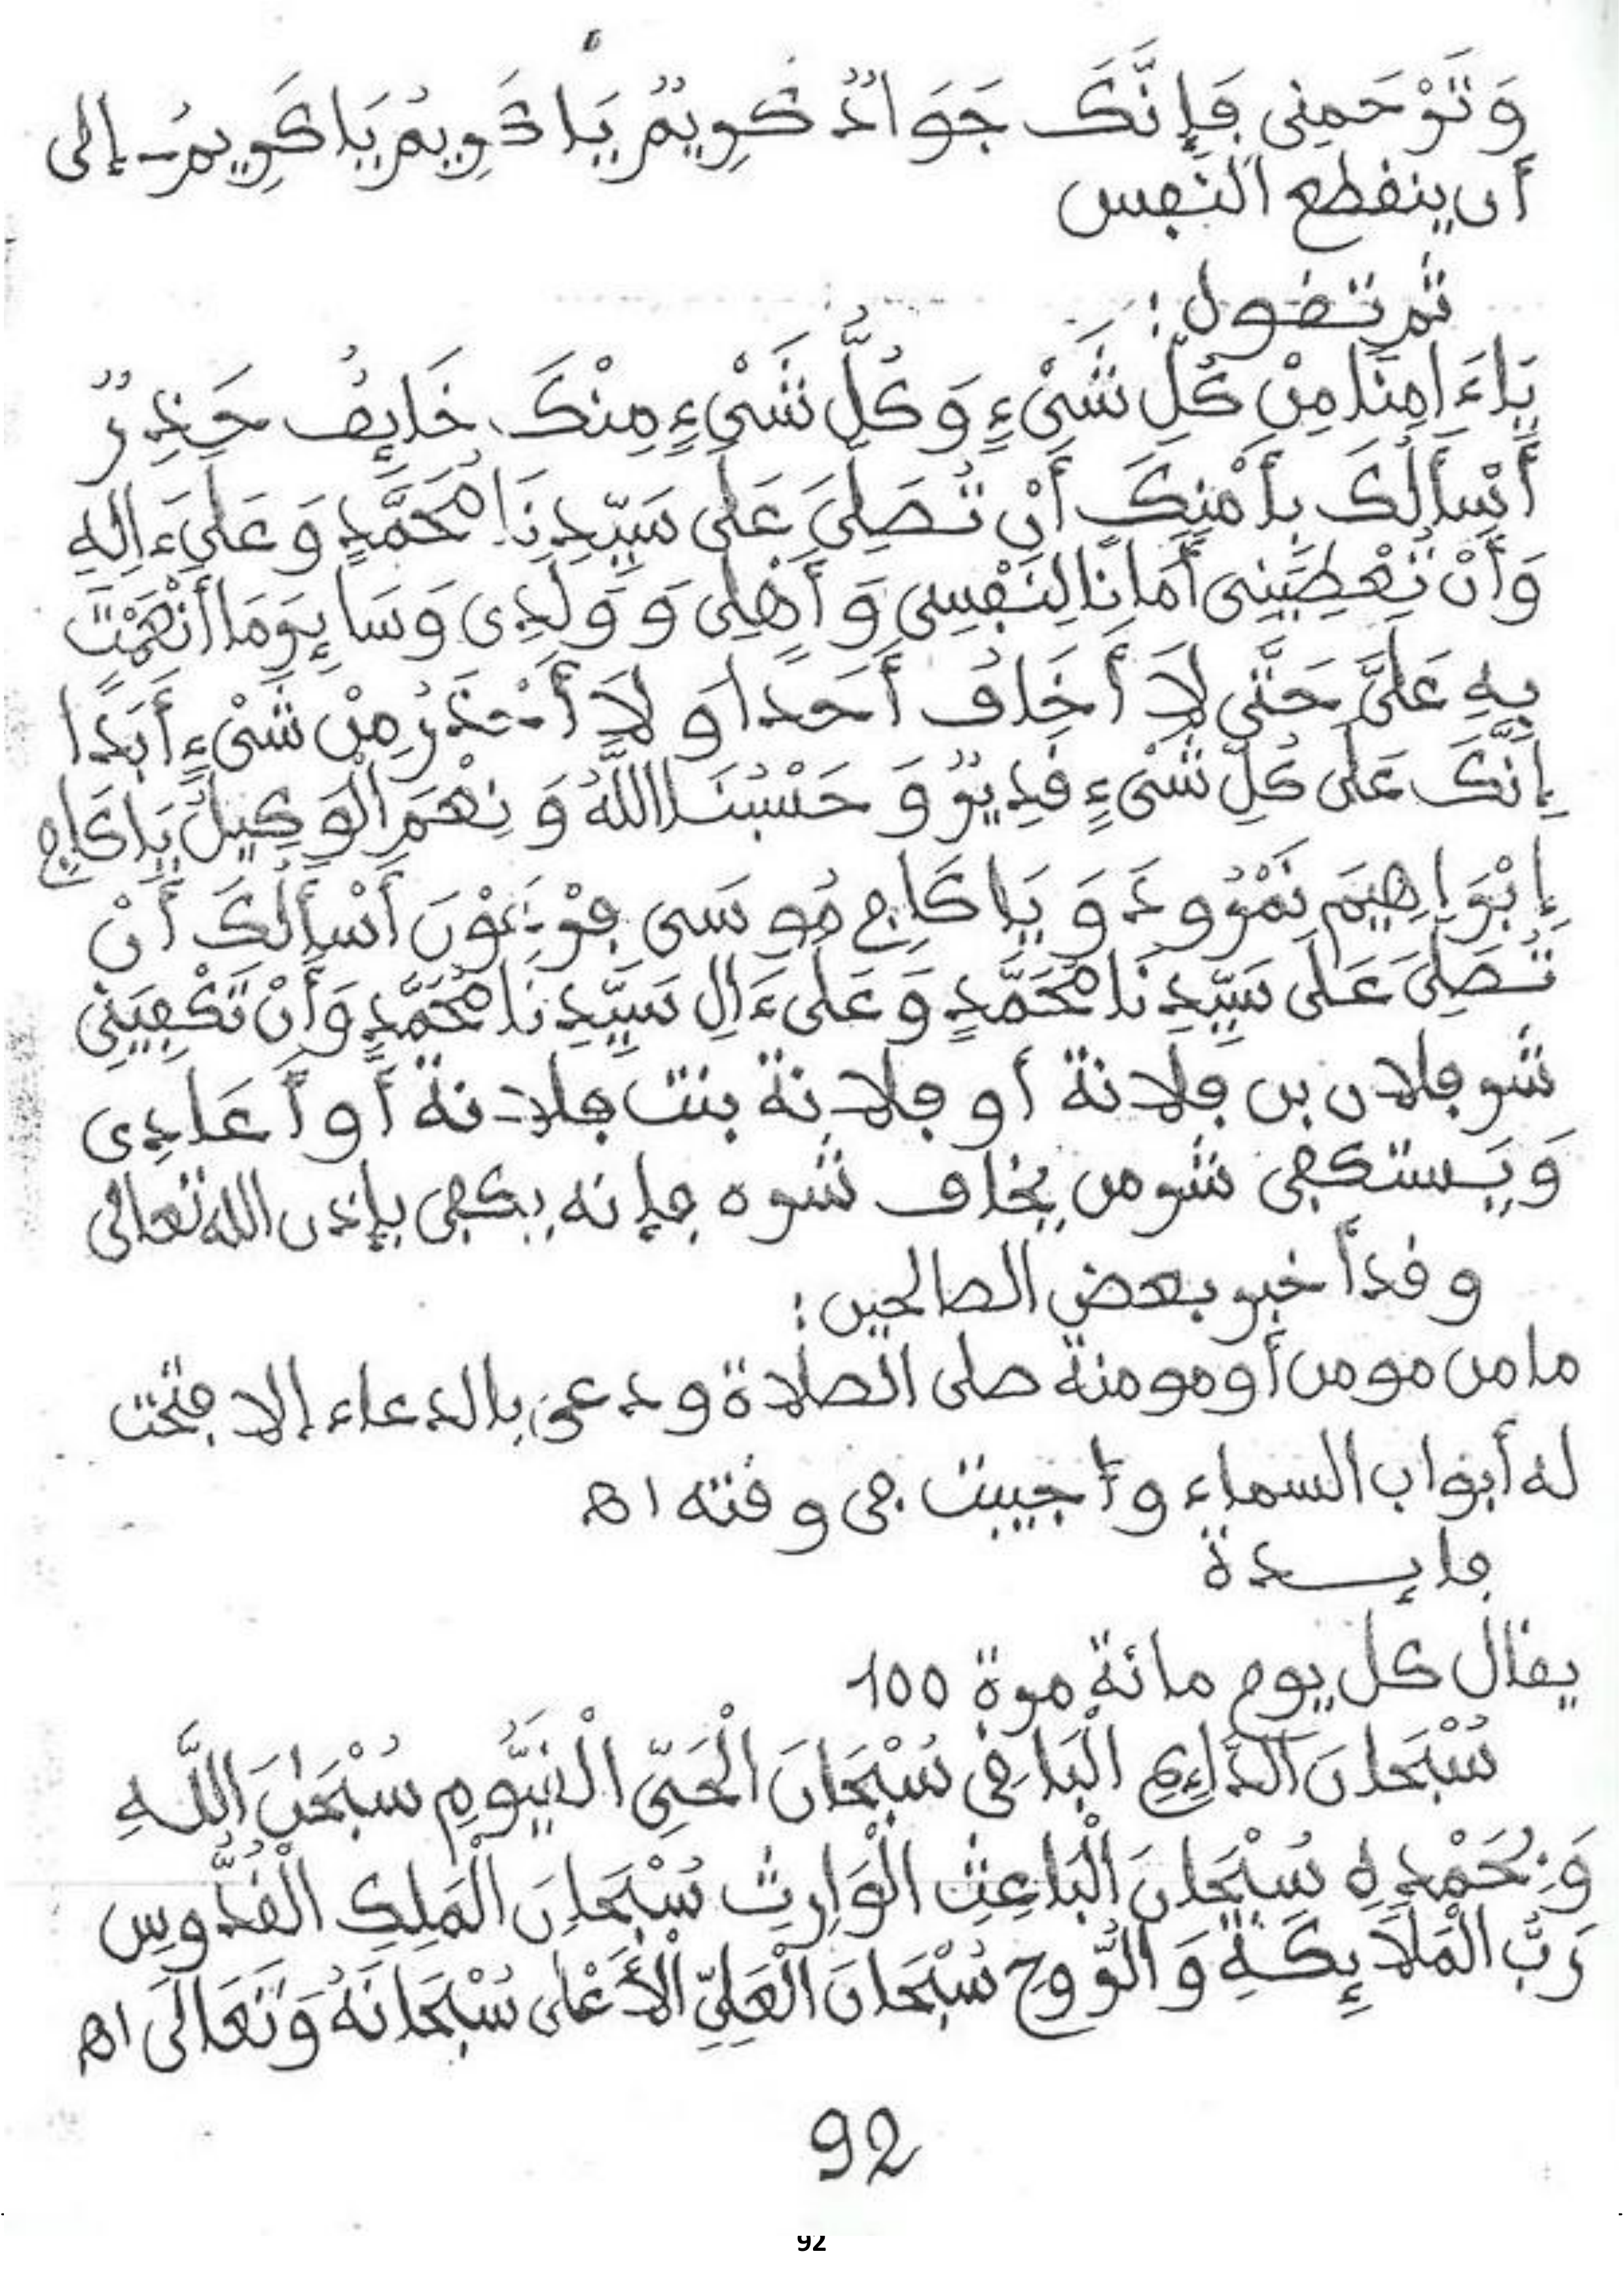 وَتَرْحَمنِي فَإِنَّكَ جَوَادٌ كَرِيمٌ يَا كَرِيمُ يَا كَرِيمُ - إلى
أن ينقطع النفس
ثم تقول :
يَاءَامِنًا مِنْ كُلِّ شَيْءٍ وَكُلُّ شَيْءٍ مِنْكَ خَايِفٌ حَذِرٌ
أَسْأَلُكَ بِأَمْنِكَ أَنْ تُصَلِّيَ عَلَى سَيِّدِنَا مُحَمَّدٍ وَعَلَىءَالِهِ
وَأَنْ تُعْطِيَنِي أَمَانًا لِنَفْسِي وَأَهْلِي وَوَلَدِي وَسَايِرِ مَا أَنْعَمْتَ
بِهِ عَلَيَّ حَتَّى لَا أَخَافَ أَحَدًا وَلَا أَحْذَرُ مِنْ شَيْءٍ أَبَدًا
إِنَّكَ عَلَى كُلِّ شَيْءٍ قَدِيرٌ وَحَسْبُنَا اللَّهُ وَنِعْمَ الْوَكِيلُ يَا كَافِي
إِبْرَاهِيمَ نَمْرُودَ وَيَا كَافِي مُوسَى فِرْعَوْنَ أَسْأَلُكَ أَنْ
تُصَلِّيَ عَلَى سَيِّدِنَا مُحَمَّدٍ وَعَلَىءَالِ سَيِّدِنَا مُحَمَّدٍ وَأَنْ تَكْفِيَنِي
شر فلان بن فلانة أو فلانة بنت فلانة أو أَعَادِي
وَيَستكفي شر من يخاف شره فإنه يكفى بإذن الله تعالى
وقد أخبر بعض الصالحين :
ما من مومن أو مومنة صلى الصلاة ودعى بالدعاء إلا فتحت
له أبواب السماء وأجيبت في وقته اهـ
فايـدة
يقال كل يوم مائة مرة 100
سُبْحَانَ الدَّايِمِ الْبَاقِي سُبْحَانَ الْحَيِّ الْقَيُّومِ سُبْحَنَ اللَّهِ
وَبِحَمْدِهِ سُبْحَانَ الْبَاعِثِ الْوَارِثِ سُبْحَانَ الْمَلِكِ الْقُدُّوسِ
رَبُّ الْمَلَايِكَةِ وَالرُّوحِ سُبْحَانَ الْعَلِيِّ الْأَعْلَى سُبْحَانَهُ وَتَعَالَى اهـ
92
92